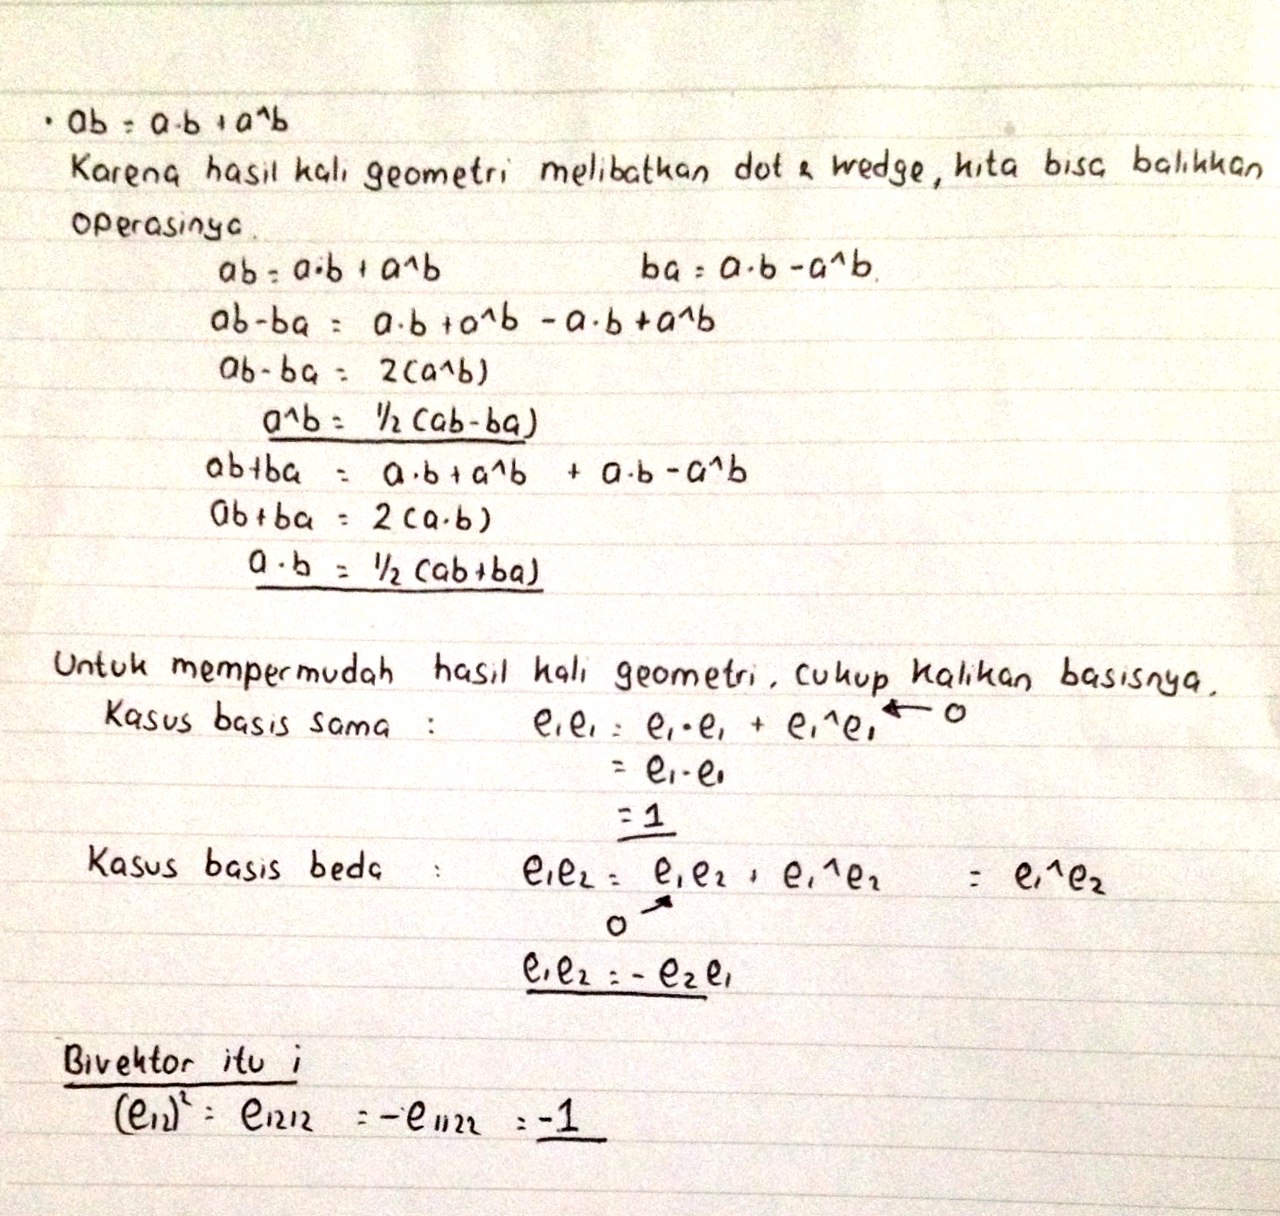 · ab = a·b + a^b
Karena hasil kali geometri melibatkan dot & wedge, kita bisa balikkan
operasinya.
ab = a·b + a^b ba = a·b - a^b.
ab-ba = a·b + a^b - a·b + a^b
ab-ba = 2(a^b)
a^b = 1/2 (ab-ba)
ab+ba = a·b + a^b + a·b - a^b
ab+ba = 2(a·b)
a·b = 1/2 (ab+ba)
Untuk mempermudah hasil kali geometri, cukup kalikan basisnya.
Kasus basis sama : e₁e₁ = e₁·e₁ + e₁^e₁ ← 0
= e₁·e₁
= 1
Kasus basis beda : e₁e₂ = e₁e₂ + e₁^e₂ = e₁^e₂
0 ↗
e₁e₂ = - e₂e₁
Bivektor itu i
(e₁₂)² = e₁₂₁₂ = -e₁₁₂₂ = -1